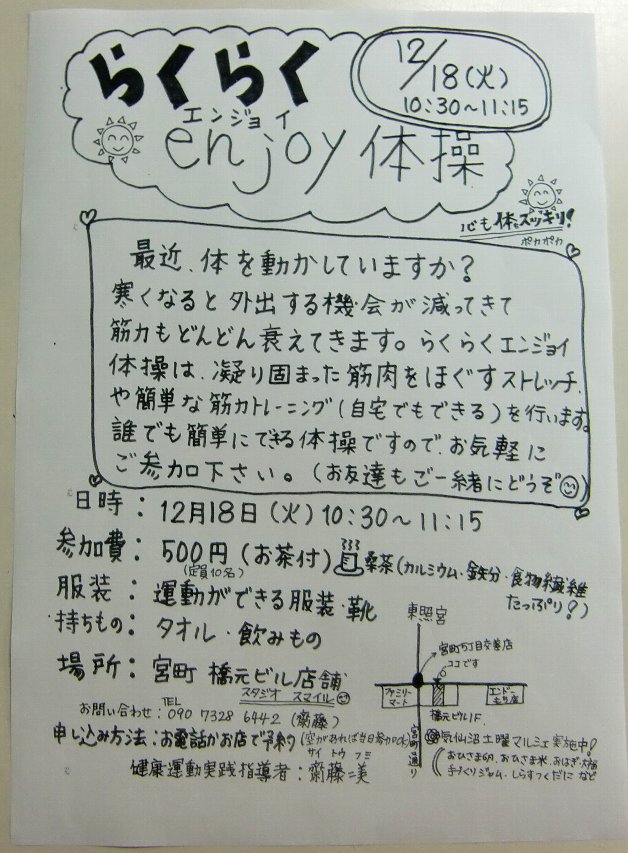 らくらく
エンジョイ
enjoy 体操
12/18(火)
10:30〜11:15
心も体もスッキリ!
ポカポカ
最近、体を動かしていますか?
寒くなると外出する機会が減ってきて
筋力もどんどん衰えてきます。らくらくエンジョイ
体操は、凝り固まった筋肉をほぐすストレッチ、
や簡単な筋力トレーニング(自宅でもできる)を行います。
誰でも簡単にできる体操ですので、お気軽に
ご参加下さい。(お友達もご一緒にどうぞ)
日時:12月18日(火)10:30〜11:15
参加費:500円(お茶付)桑茶(カルシウム・鉄分・食物繊維
たっぷり?)
(定員10名)
服装:運動ができる服装・靴
持ちもの:タオル・飲みもの
場所:宮町 橋元ビル店舗
スタジオ スマイル
お問い合わせ:TEL 090 7328 6442 (齋藤)
申し込み方法:お電話かお店で予約(空があれば当日参加OK)
サイトウ フミ
健康運動実践指導者:齋藤二美
東照宮
宮町5丁目交差点
ココです
ファミリーマート
エンドーもち店
橋元ビル1F.
宮町通り
気仙沼土曜マルシェ実施中!
おひさま卵、おひさま米、おはぎ・大福
手づくりジャム、しらすつくだに など